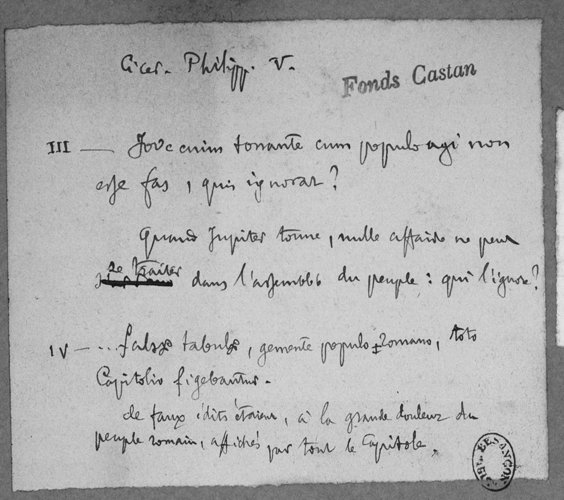 Cicer. Philipp. V.
Fonds Castan
III — Jove enim tonante cum populo agi non
esse fas, quis ignorat?
Quand Jupiter tonne, nulle affaire ne peut
se traiter dans l'assemblée du peuple : qui l'ignore?
IV — ... falsæ tabulæ, gemente populo Romano, toto
Capitolio figebantur.
de faux édits étaient, à la grande douleur du
peuple romain, affichés par tout le Capitole.
BIB. BESANÇON